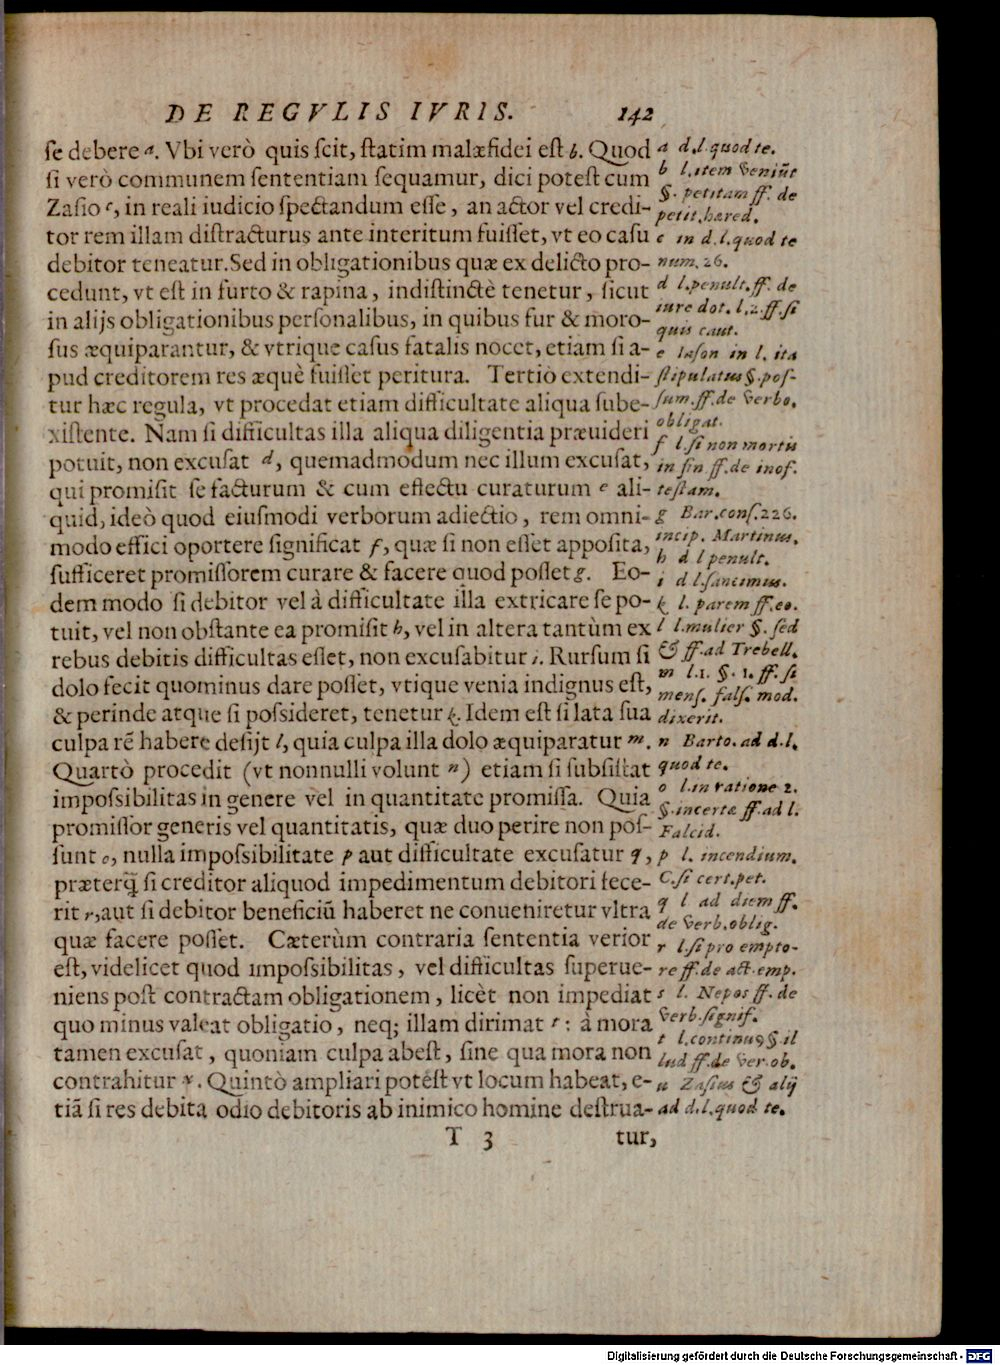 DE REGVLIS IVRIS. 142
se debere a. Vbi verò quis scit, statim malæfidei est b. Quod
si verò communem sententiam sequamur, dici potest cum
Zasio c, in reali iudicio spectandum esse, an actor vel credi-
tor rem illam distracturus ante interitum fuisset, vt eo casu
debitor teneatur. Sed in obligationibus quæ ex delicto pro-
cedunt, vt est in furto & rapina, indistinctè tenetur, sicut
in alijs obligationibus personalibus, in quibus fur & moro-
sus æquiparantur, & vtrique casus fatalis nocet, etiam si a-
pud creditorem res æquè fuisset peritura. Tertiò extendi-
tur hæc regula, vt procedat etiam difficultate aliqua sube-
xistente. Nam si difficultas illa aliqua diligentia præuideri
potuit, non excusat d, quemadmodum nec illum excusat,
qui promisit se facturum & cum effectu curaturum e ali-
quid, ideò quod eiusmodi verborum adiectio, rem omni-
modo effici oportere significat f, quæ si non esset apposita,
sufficeret promissorem curare & facere quod posset g. Eo-
dem modo si debitor vel à difficultate illa extricare se po-
tuit, vel non obstante ea promisit h, vel in altera tantùm ex
rebus debitis difficultas esset, non excusabitur i. Rursum si
dolo fecit quominus dare posset, vtique venia indignus est,
& perinde atque si possideret, tenetur k. Idem est si lata sua
culpa rē habere desijt l, quia culpa illa dolo æquiparatur m.
Quartò procedit (vt nonnulli volunt n) etiam si subsistat
impossibilitas in genere vel in quantitate promissa. Quia
promissor generis vel quantitatis, quæ duo perire non pos-
sunt o, nulla impossibilitate p aut difficultate excusatur q,
præterq̃ si creditor aliquod impedimentum debitori fece-
rit r, aut si debitor beneficiū haberet ne conueniretur vltra
quæ facere posset. Cæterùm contraria sententia verior
est, videlicet quod impossibilitas, vel difficultas superue-
niens post contractam obligationem, licèt non impediat s
quo minus valeat obligatio, neq; illam dirimat t: à mora
tamen excusat, quoniam culpa abest, sine qua mora non
contrahitur v. Quintò ampliari potest vt locum habeat, e-
tiā si res debita odio debitoris ab inimico homine destrua-
T 3 tur,
a d.l.quod te.
b l.item veniūt
§. petitam ff. de
petit.hæred.
c in d.l.quod te
num.26.
d l.penult.ff. de
iure dot. l.2.ff.si
quis caut.
e Iason in l. ita
stipulatus §.pos-
sum.ff.de verbo.
obligat.
f l.si non mortis
in fin ff.de inof.
testam.
g Bar.cons.226.
incip. Martinus.
h d l penult.
i d l.sancimus.
k l. parem ff.eo.
l l.mulier §. sed
& ff.ad Trebell.
m l.1. §. 1. ff. si
mens. fals. mod.
dixerit.
n Barto. ad d.l.
quod te.
o l.in ratione 2.
§.incertæ ff.ad l.
Falcid.
p l. incendium.
C.si cert.pet.
q l ad diem ff.
de verb.oblig.
r l.si pro empto-
re ff.de act.emp.
s l. Nepos ff. de
verb.signif.
t l.continuꝰ §.il
lud ff.de ver.ob.
u Zasius & alij
ad d.l.quod te.
Digitalisierung gefördert durch die Deutsche Forschungsgemeinschaft - DFG